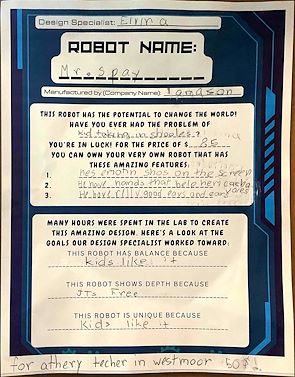 Design Specialist: Elvira
ROBOT NAME:
Mr. Spay
Manufactured by (Company Name): Tamason
THIS ROBOT HAS THE POTENTIAL TO CHANGE THE WORLD!
HAVE YOU EVER HAD THE PROBLEM OF
kid talking in
YOU'RE IN LUCK! FOR THE PRICE OF $ 85
YOU CAN OWN YOUR VERY OWN ROBOT THAT HAS
THESE AMAZING FEATURES:
1. hes on the screen
2. He have hands that help
3. He have good ears and
MANY HOURS WERE SPENT IN THE LAB TO CREATE
THIS AMAZING DESIGN. HERE'S A LOOK AT THE
GOALS OUR DESIGN SPECIALIST WORKED TOWARD:
THIS ROBOT HAS BALANCE BECAUSE
kids like it
THIS ROBOT SHOWS DEPTH BECAUSE
JTs Free
THIS ROBOT IS UNIQUE BECAUSE
Kids like it
for athery techer in westmoor 50$!!